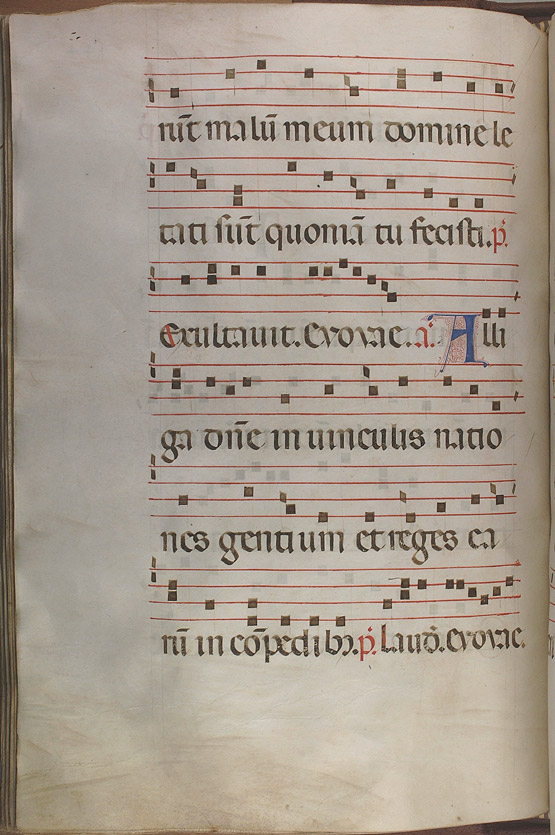 rūt malū meum domine le
tati sūt quoniā tu fecisti. p̄.
Exultauit. Evovae. a. Alli
ga dn̄e in uinculis natio
nes gentium et reges eo
rū in cōpedibꝫ. p̄. Laud̄. Evovae.